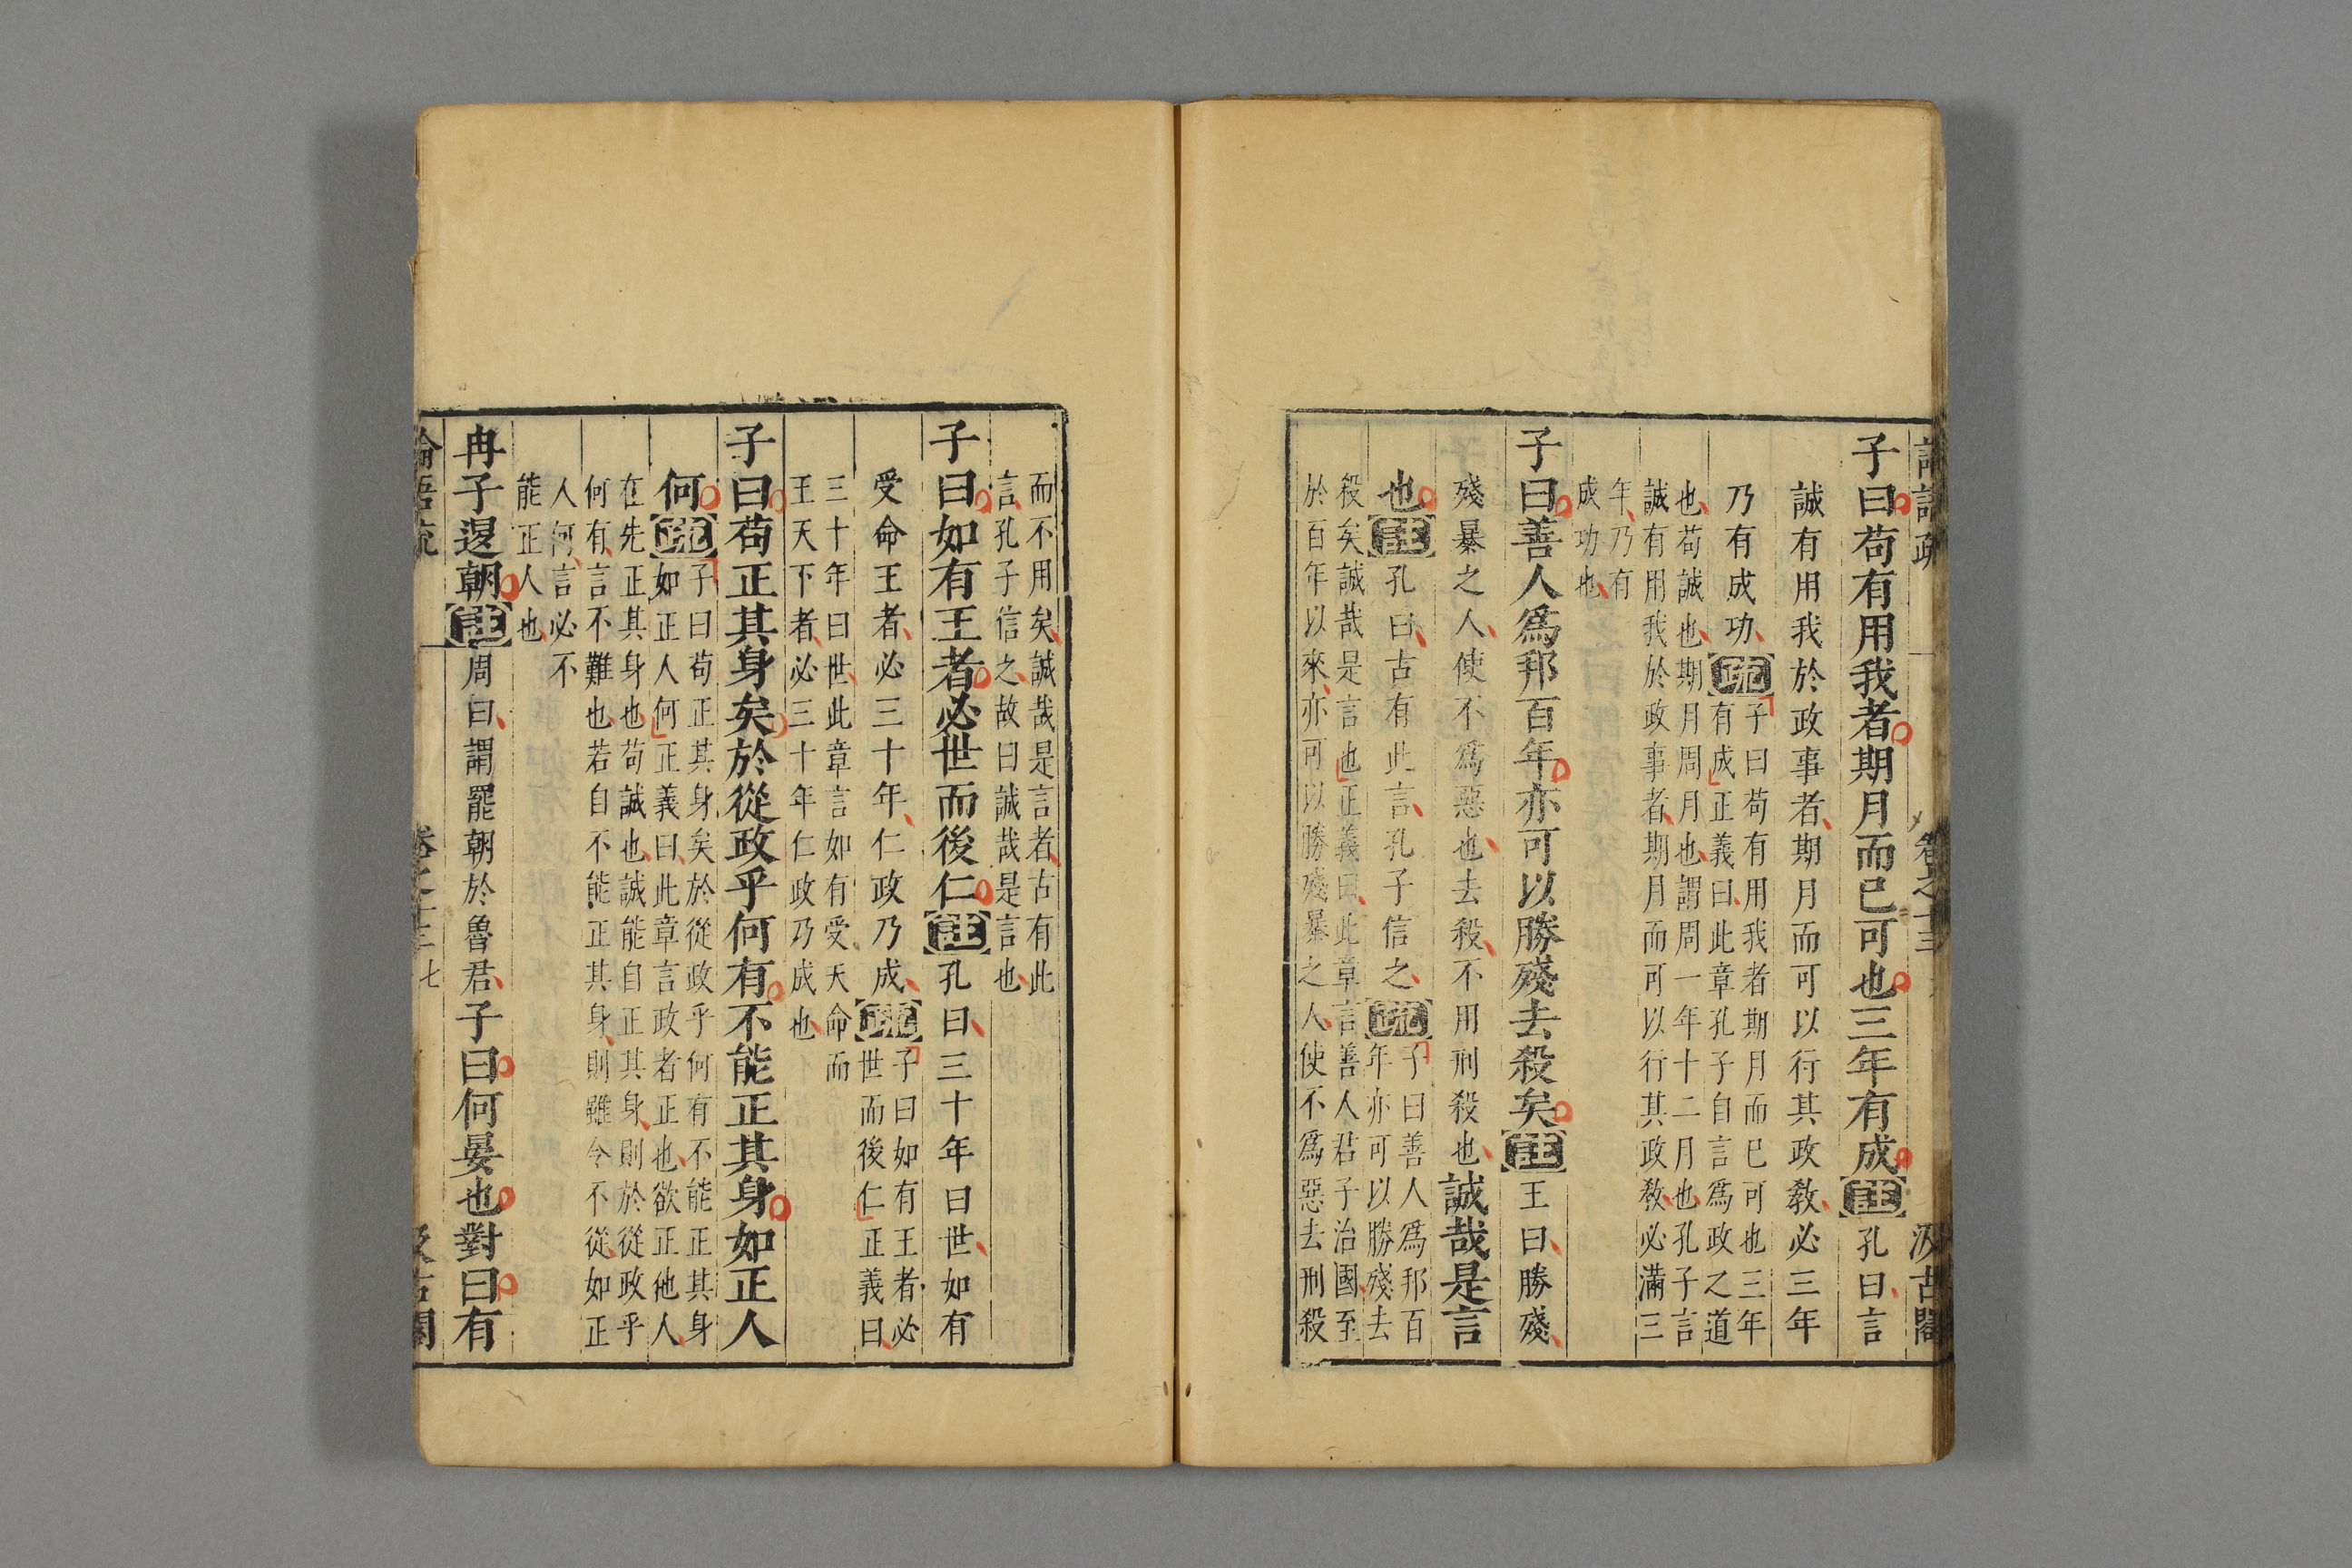 論語疏 卷之十三 汲古閣
子曰苟有用我者期月而已可也三年有成註孔曰言
誠有用我於政事者期月而可以行其政教必三年
乃有成功疏子曰苟有用我者期月而已可也三年
有成正義曰此章孔子自言爲政之道
也苟誠也期月周月也謂周一年十二月也孔子言
誠有用我於政事者期月而可以行其政教必滿三
年乃有
成功也
子曰善人爲邦百年亦可以勝殘去殺矣註王曰勝殘
殘暴之人使不爲惡也去殺不用刑殺也誠哉是言
也註孔曰古有此言孔子信之疏子曰善人爲邦百
年亦可以勝殘去
殺矣誠哉是言也正義曰此章言善人君子治國至
於百年以來亦可以勝殘暴之人使不爲惡去刑殺
而不用矣誠哉是言者古有此
言孔子信之故曰誠哉是言也
子曰如有王者必世而後仁註孔曰三十年曰世如有
受命王者必三十年仁政乃成疏子曰如有王者必
世而後仁正義曰
三十年曰世此章言如有受天命而
王天下者必三十年仁政乃成也
子曰苟正其身矣於從政乎何有不能正其身如正人
何疏子曰苟正其身矣於從政乎何有不能正其身
如正人何正義曰此章言政者正也欲正他人
在先正其身也苟誠也誠能自正其身則於從政乎
何有言不難也若自不能正其身則雖令不從如正
人何言必不
能正人也
冉子退朝註周曰謂罷朝於魯君子曰何晏也對曰有
論語疏 卷之十三 七 汲古閣